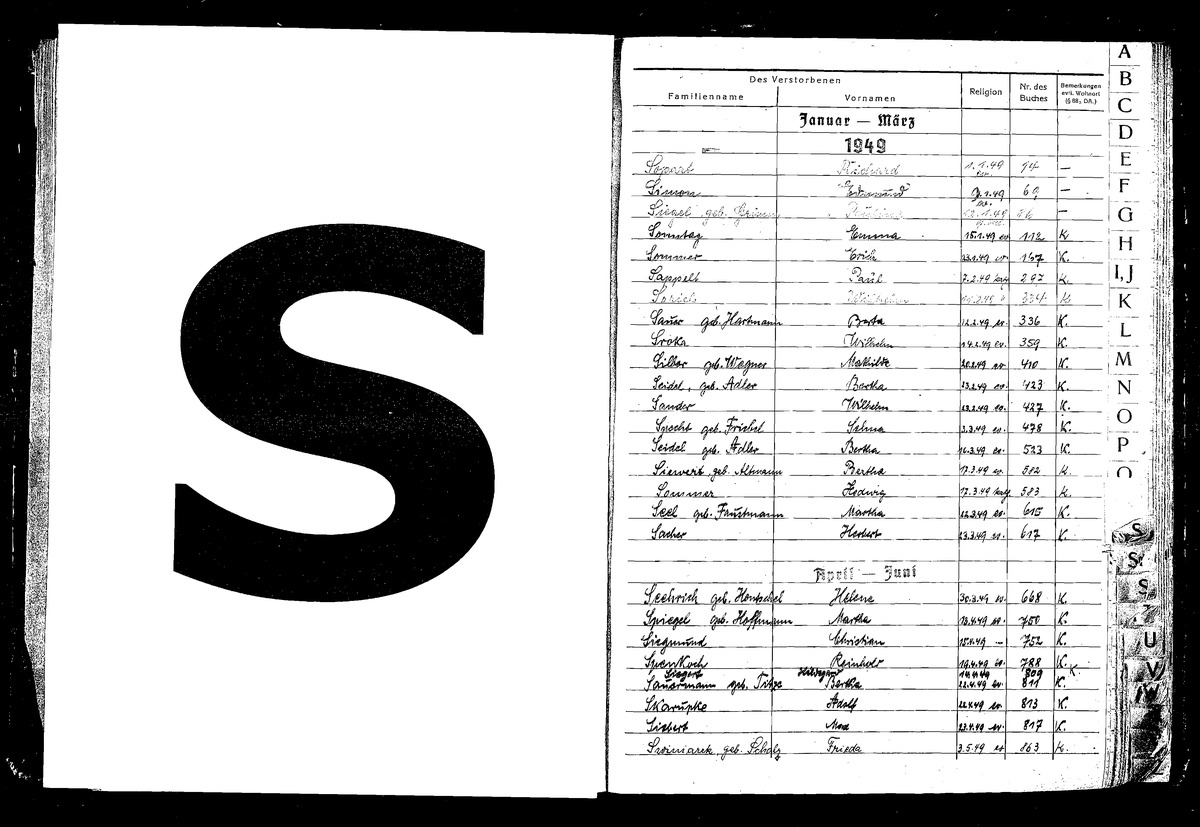 S
Des Verstorbenen
Familienname Vornamen Religion Nr. des Buches Bemerkungen evtl. Wohnort (§ 88, DA.)
Januar — März
1949
Richard 1.1.49 ev. 14 —
Simon Edmund 9.1.49 69 —
Siegel geb. Grimm 12.1.49 —
Sonntag Emma 15.1.49 ev. 112 K
Sommer Erich 23.1.49 ev. 157 K.
Sappelt Paul 7.2.49 kath 297 K.
Wilhelm 334 K
Sauer geb. Hartmann Berta 12.2.49 ev. 336 K.
Sroka Wilhelm 14.2.49 ev. 359 K.
Silber geb. Wegner Mathilde 20.2.49 ev 410 K.
Seidel, geb. Adler Bertha 23.2.49 ev. 423 K.
Sander Wilhelm 23.2.49 ev. 427 K.
Specht geb. Selma 3.3.49 ev. 478 K.
Seidel geb. Adler Bertha 10.3.49 ev. 523 K.
Siewert geb. Altmann Bertha 17.3.49 ev. 582 K.
Sommer Hedwig 17.3.49 kath 583 K.
Seel geb. Faustmann Martha 22.3.49 ev. 615 K.
Sacher Herbert 23.3.49 ev. 617 K.
April — Juni
geb. Hentschel Helene 30.3.49 ev. 668 K.
Spiegel geb. Hoffmann Martha 13.4.49 ev. 750 K.
Siegmund Christian 15.4.49 — 752 K.
Spenkoch Reinhold 19.4.49 ev. 788 K.
Siegert Hildegard 809 K.
Sauermann geb. Titze Bertha 22.4.49 ev. 811 K.
Skarupke Adolf 22.4.49 ev. 813 K.
Siebert Max 23.4.49 ev. 817 K.
Swiniarek geb. Scholz Frieda 3.5.49 ev 863 K.
A
B
C
D
E
F
G
H
I, J
K
L
M
N
O
P
S
S
S
U
V
W